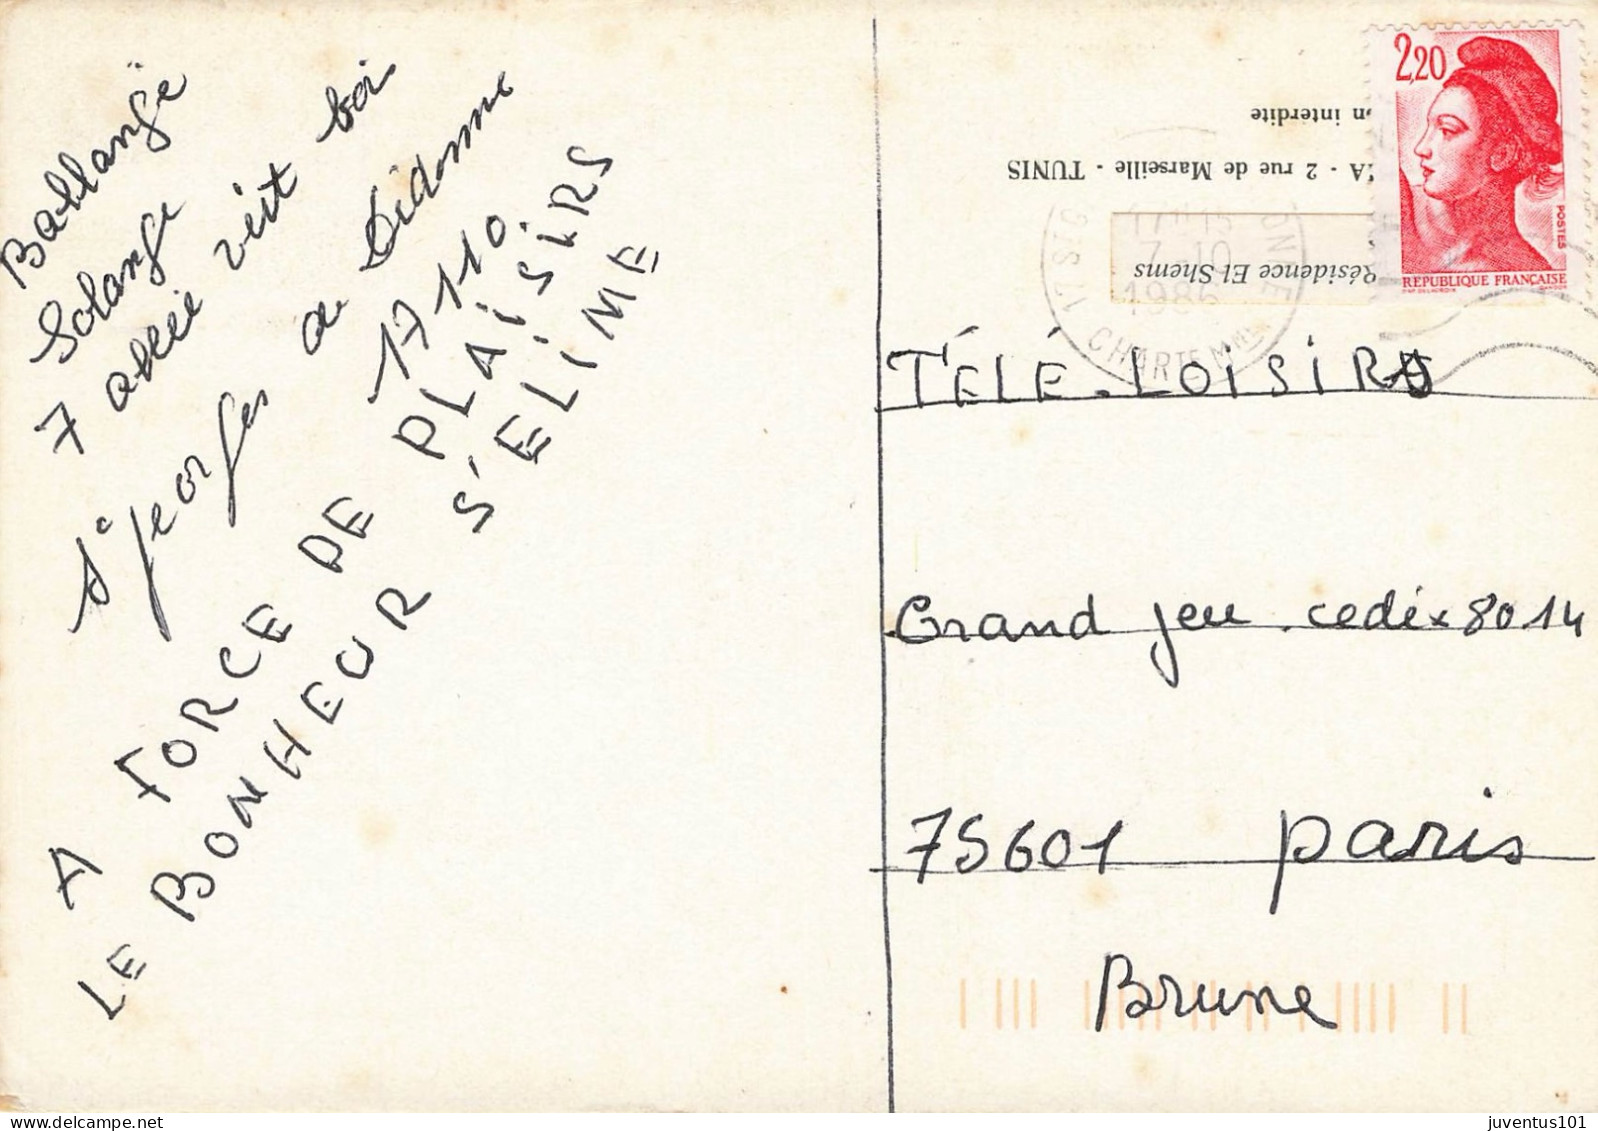 Ballangë
Solange
7 allée vert boi
St Jeorfes de Didonne
17110
A FORCE DE PLAiSiRS
LE BONHEUR S'ELiME
2,20
POSTES
REPUBLIQUE FRANÇAISE
on interdite
'A - 2 rue de Marseille - TUNIS
Résidence El Shems
17 ST G
17H15
7-10
1986
ONNE
CHARTE MME
TÉLÉ-LOISiRS
Grand jeu . cedéx 8014
75601 paris
Brune
juventus101